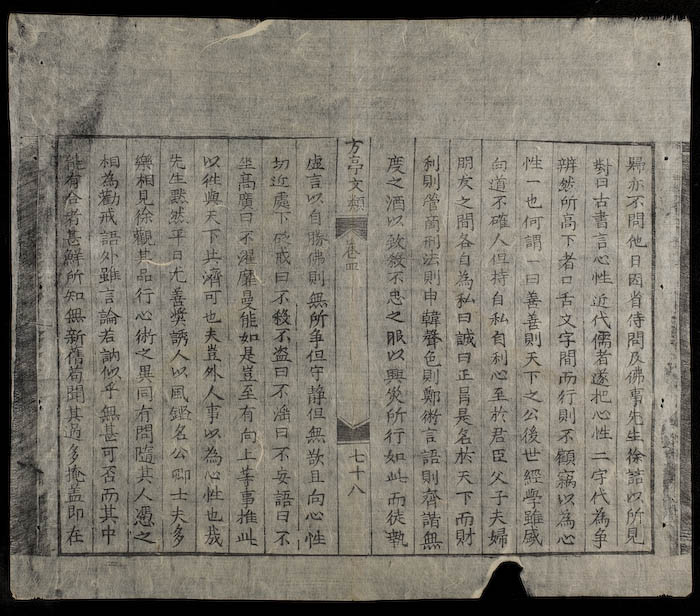 歸亦不問他日因省侍問及佛事先生徐詰以所見
對曰古書言心性近代儒者遂把心性二字代為爭
辨然所高下者口舌文字間而行則不顧竊以為心
性一也何謂一曰善善則天下之公後世經學雖盛
向道不確人但持自私自利心至於君臣父子夫婦
朋友之間各自為私曰誠曰正肎是名於天下而財
利則管商刑法則申韓聲色則鄭衛言語則齊諧無
度之酒以敘不思之眠以興災所行如此而徒執
方亭文類
卷四
七十八
虛言以自勝佛則無所爭但守靜但無欲且向心性
切近處下戒曰不殺不盜曰不淫曰不妄語曰不
坐高廣曰不濯靡曼能如是豈至有向上等事推此
以往與天下共濟可也夫豈外人事以為心性也哉
先生默然平日尤善獎誘人以風鑑名公卿士夫多
樂相見徐觀其品行心術之異同有問隨其人憑之
相為勸戒語外雖言論若訥似乎無甚可否而其中
能有合者甚鮮所知無新舊茍聞其過多掩蓋即在